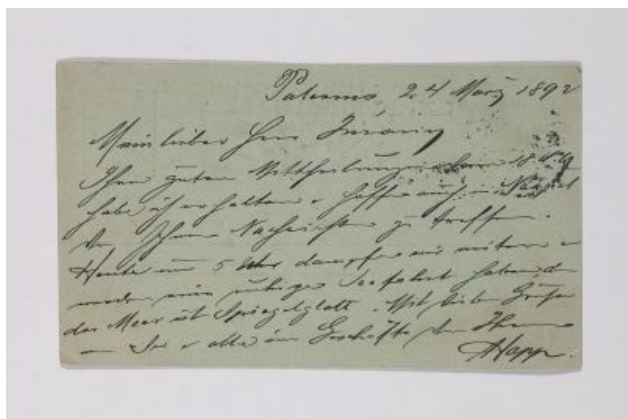 Palermo 24 März 1892
Mein lieber Herr
Ihre guten Mittheilungen 18 d. M.
habe ich erhalten & hoffe auch in Neapel
von Ihnen Nachrichten zu treffen.
Heute um 5 Uhr dampfen wir weiter &
werden eine ruhige Seefahrt haben, da
das Meer ist Spiegelglatt. Mit lieben Grüßen
an Sie & alle im Geschäfte Ihr
Happ.